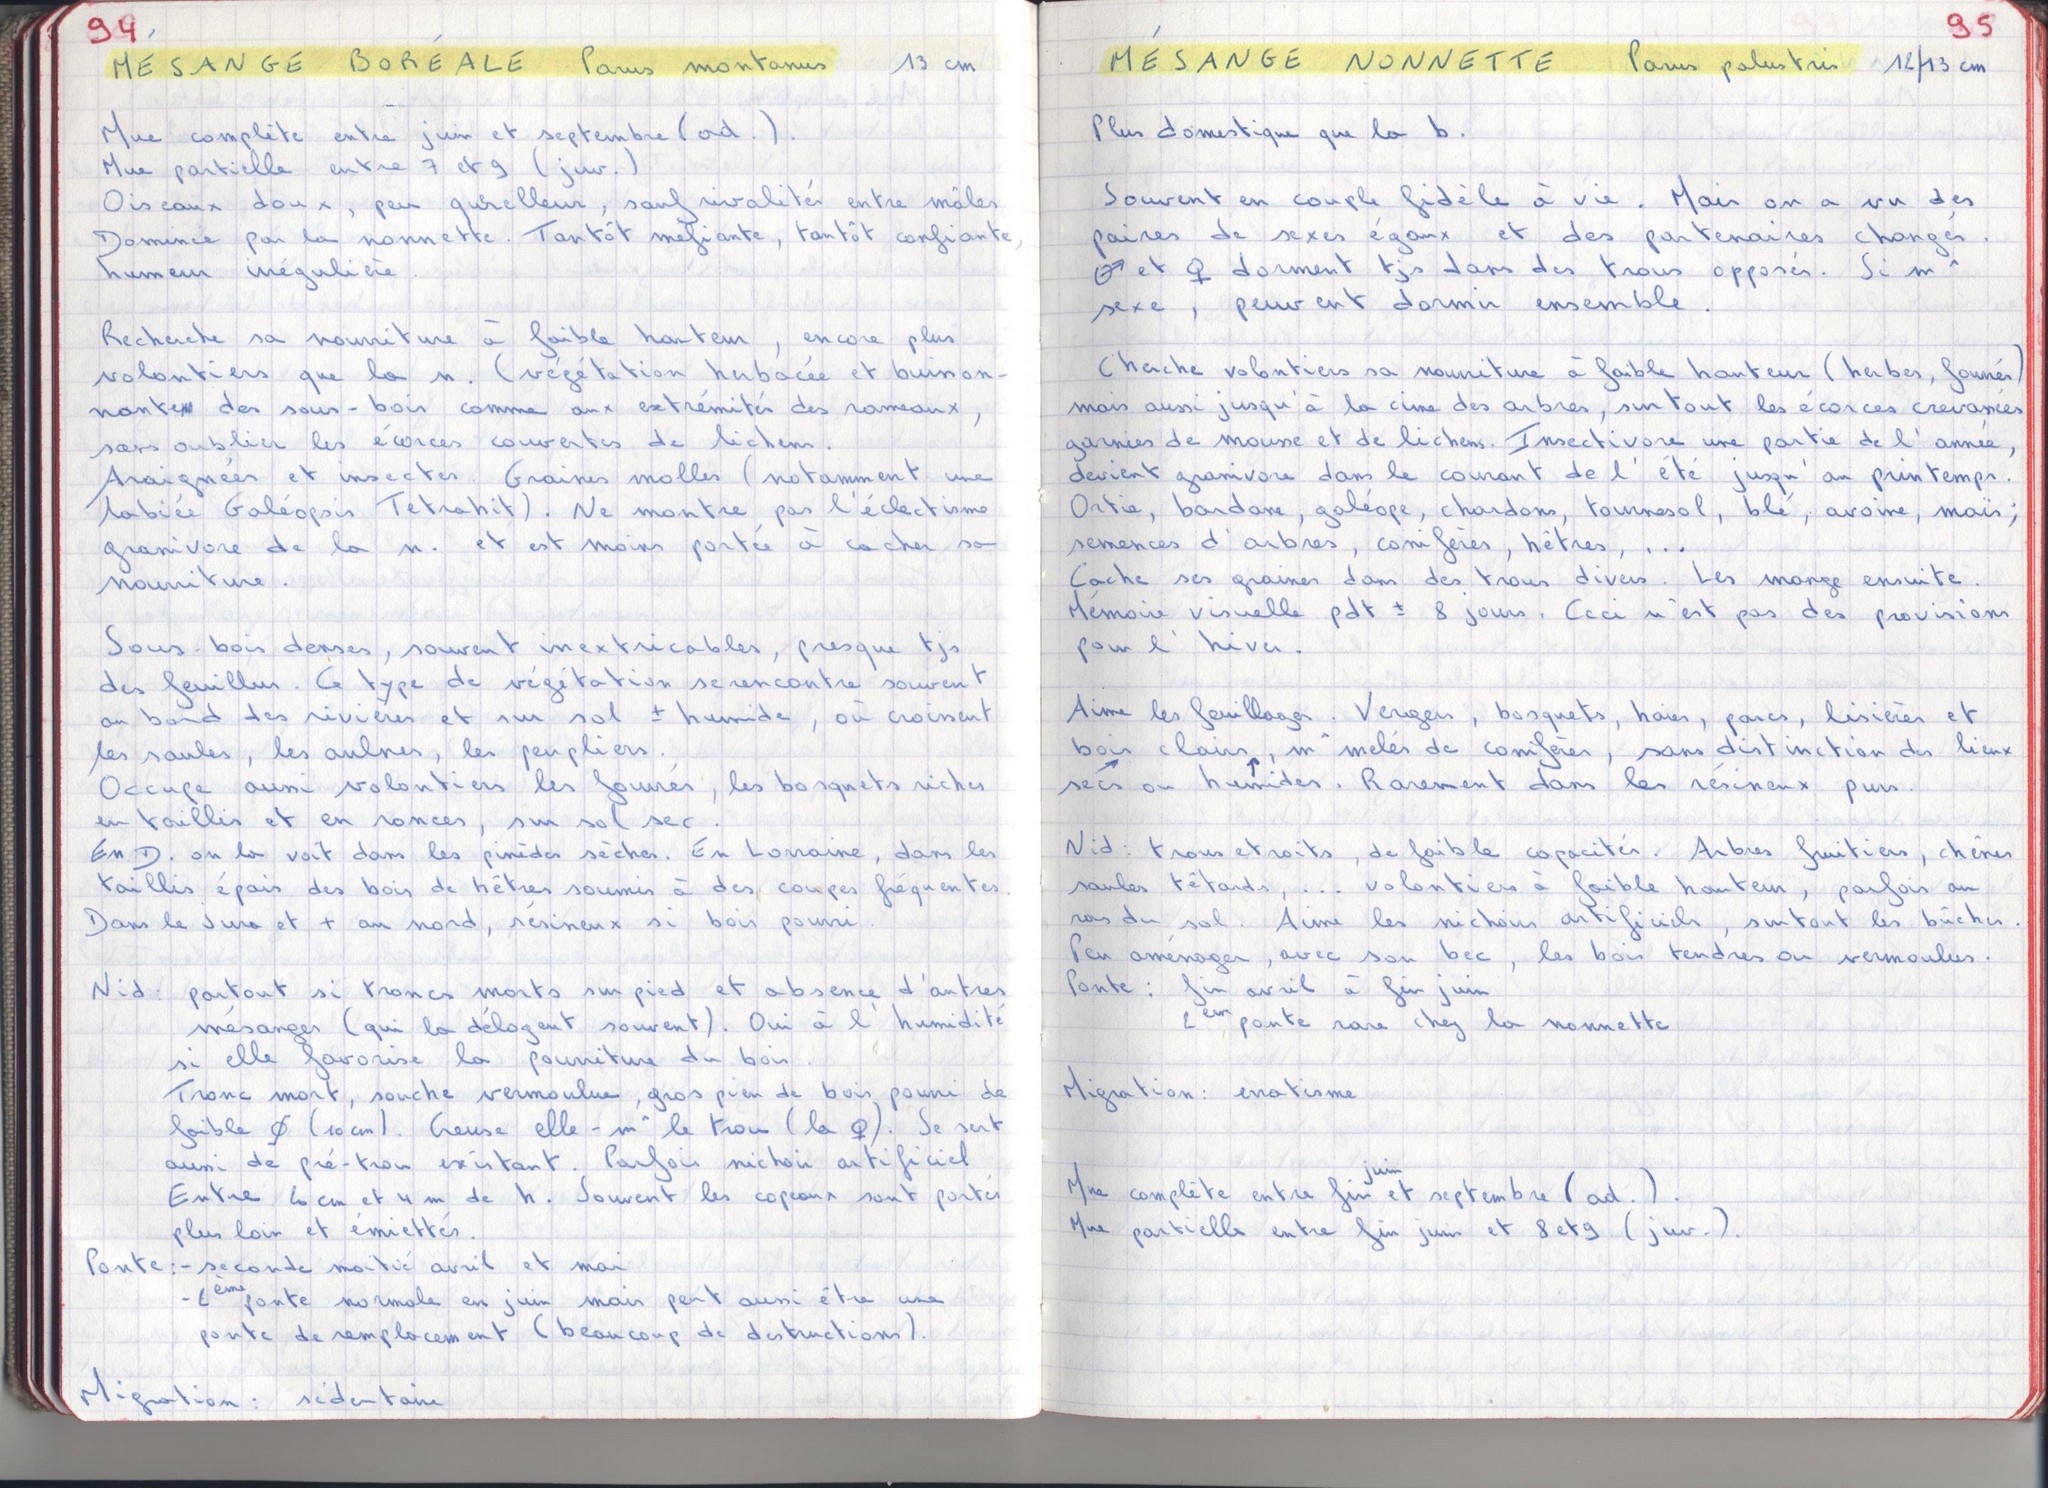 94
MÉSANGE BORÉALE Parus montanus 13 cm
Mue complète entre juin et septembre (ad.).
Mue partielle entre 7 et 9 (juv.)
Oiseaux doux, peu querelleur, sauf rivalités entre mâles
Dominée par la nonnette. Tantôt méfiante, tantôt confiante,
humeur irrégulière.
Recherche sa nourriture à faible hauteur, encore plus
volontiers que la n. (végétation herbacée et buisson-
nante des sous-bois comme aux extrémités des rameaux,
sans oublier les écorces couvertes de lichens.
Araignées et insectes. Graines molles (notamment une
labiée Galéopsis Tetrahit). Ne montre pas l'éclectisme
granivore de la n. et est moins portée à cacher sa
nourriture.
Sous-bois denses, souvent inextricables, presque tjs
des feuillus. Ce type de végétation se rencontre souvent
au bord des rivières et sur sol ± humide, où croissent
les saules, les aulnes, les peupliers.
Occupe aussi volontiers les fourrés, les bosquets riches
en taillis et en ronces, sur sol sec.
En D. on la voit dans les pinèdes sèches. En Lorraine, dans les
taillis épais des bois de hêtres soumis à des coupes fréquentes.
Dans le Jura et + au nord, résineux si bois pourri.
Nid: partout si troncs morts sur pied et absence d'autres
mésanges (qui la délogent souvent). Oui à l'humidité
si elle favorise la pourriture du bois.
Tronc mort, souche vermoulue, gros pieu de bois pourri de
faible Ø (10cm). Creuse elle-m^ le trou (la ♀). Se sert
aussi de pré-trou existant. Parfois nichoir artificiel
Entre 20 cm et 4 m de h. Souvent les copeaux sont portés
plus loin et émiettés.
Ponte: - seconde moitié avril et mai
- 2ème ponte normale en juin mais peut aussi être une
ponte de remplacement (beaucoup de destructions).
Migration: sédentaire
95
MÉSANGE NONNETTE Parus palustris 12/13 cm
Plus domestique que la b.
Souvent en couple fidèle à vie. Mais on a vu des
paires de sexes égaux et des partenaires changés.
♂ et ♀ dorment tjs dans des trous opposés. Si m^
sexe, peuvent dormir ensemble.
Cherche volontiers sa nourriture à faible hauteur (herbes, fourrés)
mais aussi jusqu'à la cime des arbres, surtout les écorces crevassées
garnies de mousse et de lichens. Insectivore une partie de l'année,
devient granivore dans le courant de l'été jusqu'au printemps.
Ortie, bardane, galéope, chardons, tournesol, blé, avoine, maïs;
semences d'arbres, conifères, hêtres, ...
Cache ses graines dans des trous divers. Les mange ensuite.
Mémoire visuelle pdt ± 8 jours. Ceci n'est pas des provisions
pour l'hiver.
Aime les feuillages. Vergers, bosquets, haies, parcs, lisières et
bois clairs, m^ mêlés de conifères, sans distinction des lieux
secs ou humides. Rarement dans les résineux purs.
Nid: trous étroits, de faible capacités. Arbres fruitiers, chênes
saules têtards, ... volontiers à faible hauteur, parfois au
ras du sol. Aime les nichoirs artificiels, surtout les bûches.
Peu aménager, avec son bec, les bois tendres ou vermoulus.
Ponte: fin avril à fin juin
2ème ponte rare chez la nonnette
Migration: erratisme
Mue complète entre fin juin et septembre (ad.).
Mue partielle entre fin juin et 8 et 9 (juv.).